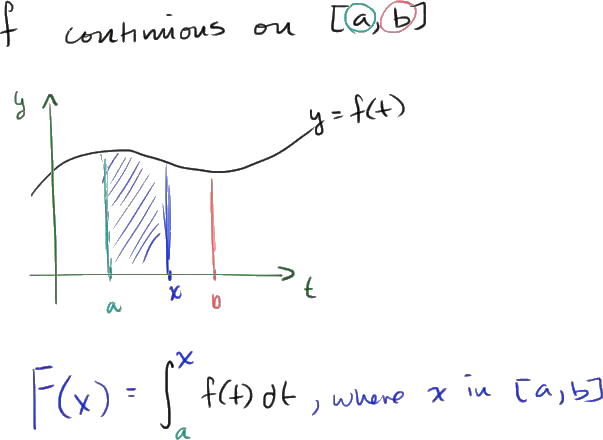 f continuous on [a, b]
y
y = f(t)
a x b t
F(x) = ∫ₐˣ f(t) dt, where x in [a, b]